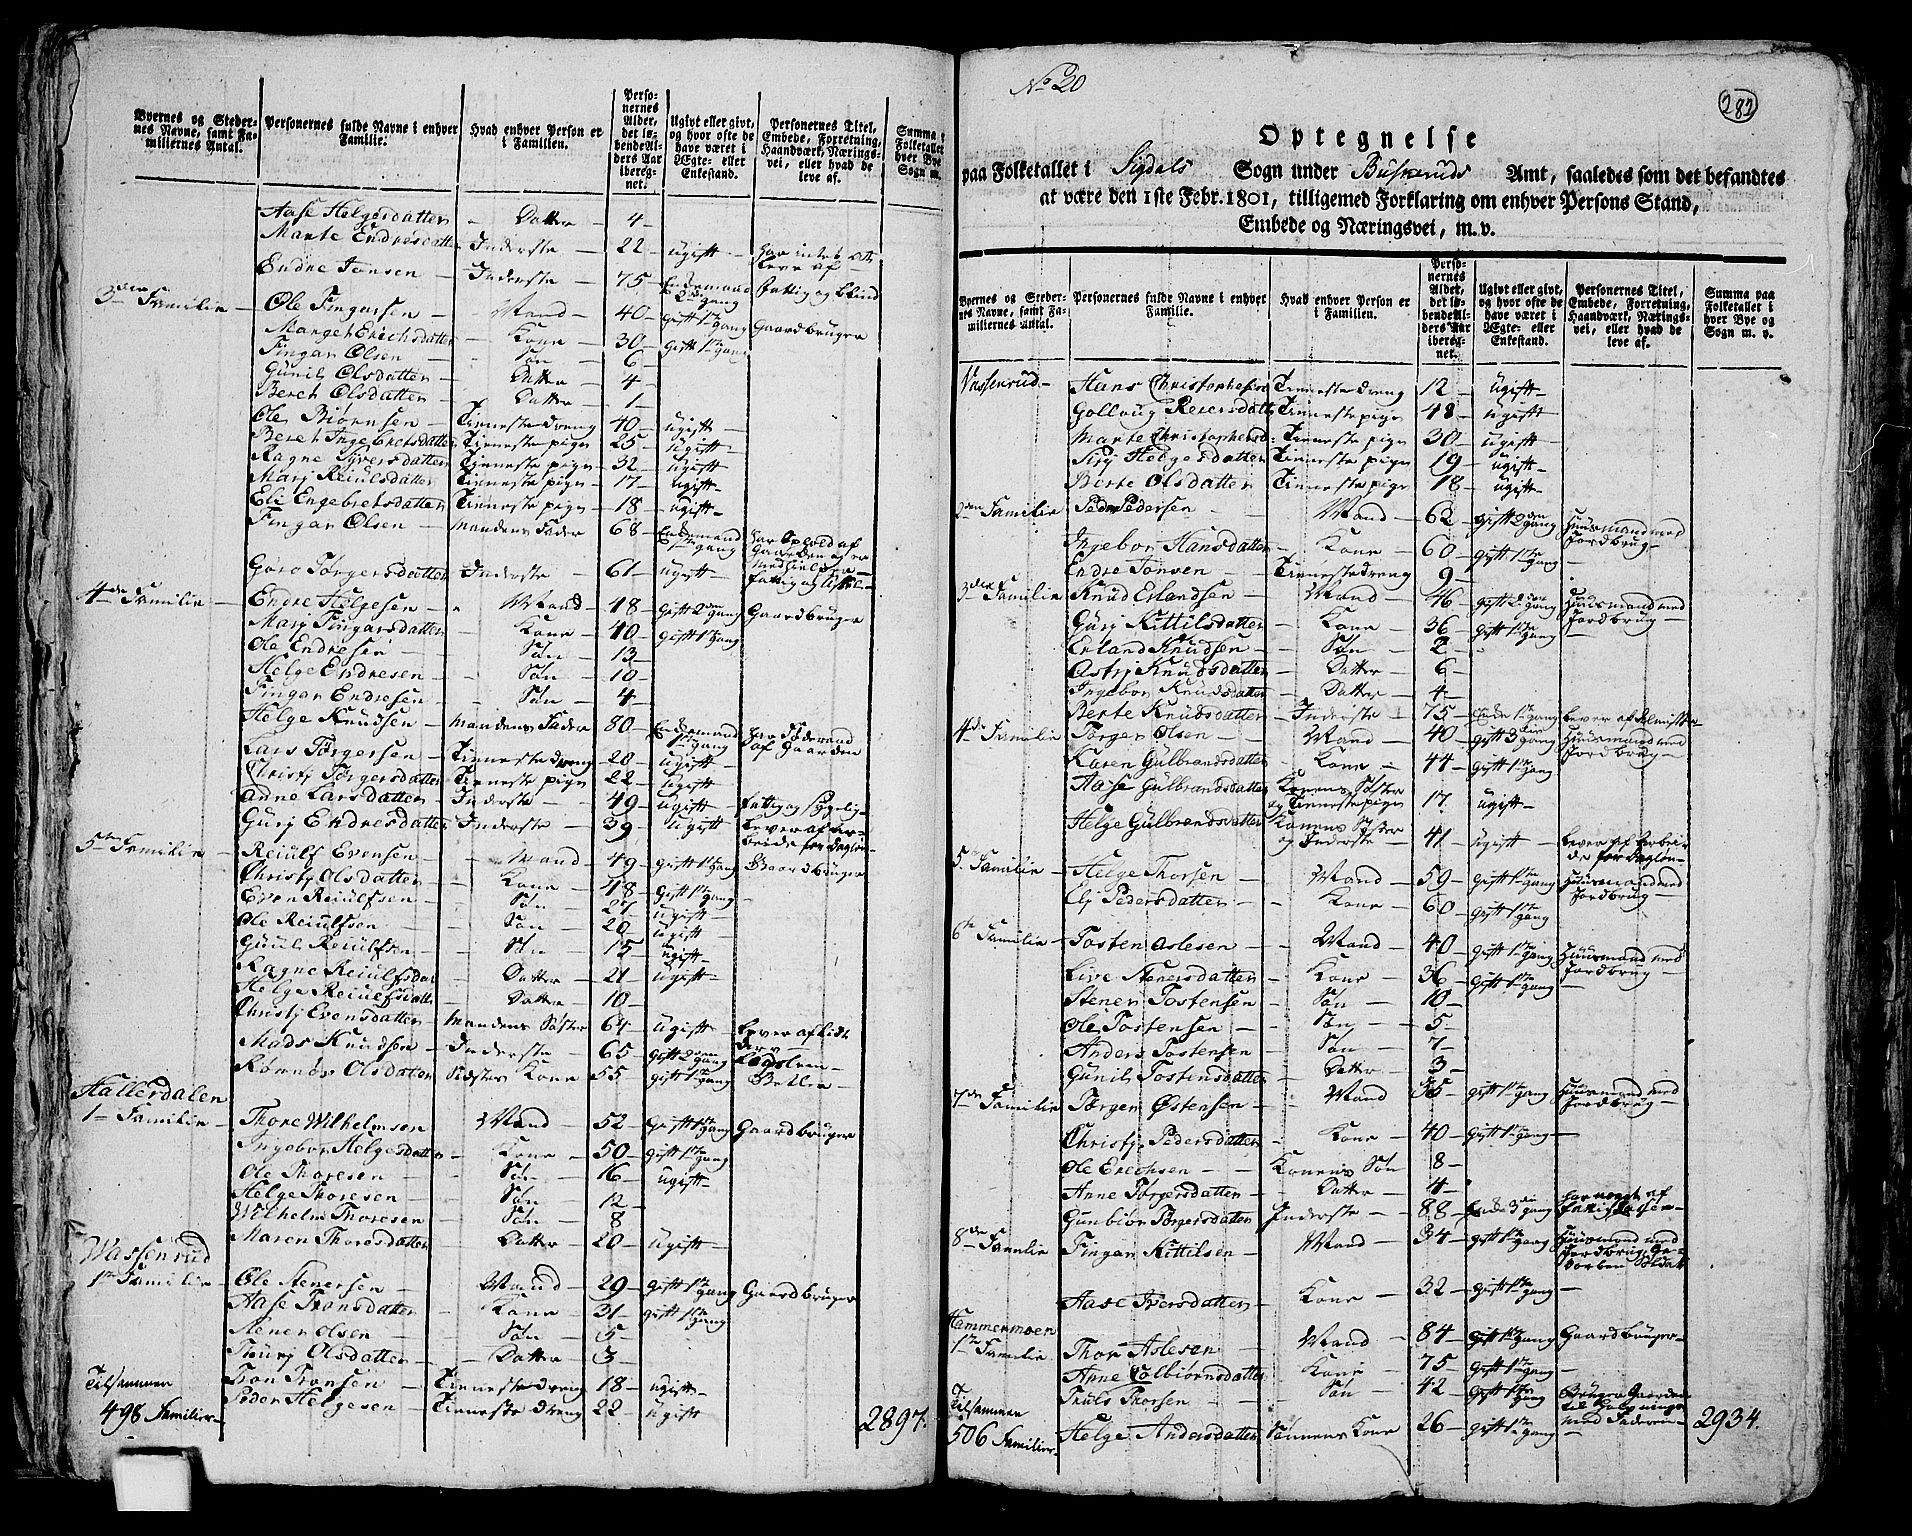 Byernes og Steder-
nes Navne, samt Fa-
miliernes Antal.
Personernes fulde Navne i enhver
Familie.
Hvad enhver Person er
i Familien.
Perso-
nernes
Alder,
det lø-
bende Al-
ders Aar
ibereg-
net.
Ugivt eller givt,
og hvor ofte de
have været i
Ægte- eller
Enkestand.
Personernes Titel,
Embede, Forretning,
Haandværk, Nærings-
vei, eller hvad de
leve af.
Summa
Folketallet
hver Bye og
Sogn m.
Aase Helgesdatter - Datter - 4 -
Marte Endresdatter Inderste - 22 - ugift - har intet at leve af -
Endre Jonsen - Inderste - 75 - Enkemand 2den gang fattig og blind
3die Familie - Ole Fingarsen - Mand - 40 - gift 1te gang Gaardbruger
Manget Erichsdatter - Kone - 30 - gift 1te gang
Fingar Olsen - Søn - 6 -
Gunil Olsdatter - Datter - 4 -
Beret Olsdatter - Datter - 1 -
Ole Biørnsen - Tienestedreng 40 - ugift -
Beret Ingebretsdatter Tienestepige - 25 - ugift -
Ragne Syversdatter Tienestepige - 32 - ugift -
Marj Reiulsdatter Tienestepige - 17 - ugift -
Eli Engebretsdatter Tienestepige - 18 - ugift -
Fingar Olsen - Mandens Fader 68 - Enkemand 1te gang har Ophold af Gaarden og er
Goro Torgersdatter Inderste - 61 - ugift - fattig og
4de Familie - Endre Helgesen - Mand - 48 - gift 2den gang Gaardbruger
Marj Fingarsdatter - Kone - 40 - gift 1te gang
Ole Endresen - Søn - 13 -
Helge Endresen - Søn - 10 -
Fingar Endresen - Søn - 4 -
Helge Knudsen - Mandens Fader 80 - Enkemand 1te gang har Föderaad af Gaarden
Lars Torgersen - Tienestedreng 20 - ugift -
Christj Torgersdatter Tienestepige - 22 - ugift
Anne Larsdatter - Inderste - 49 - ugift - fattig og sygelig
Gurj Endresdatter Inderste - 39 - ugift - lever af arbeide for dagløn
5te Familie - Reiulf Evensen - Mand - 49 - gift 1te gang Gaardbruger
Christj Olsdatter - Kone - 48 - gift 1te gang
Even Reiulfsen - Søn - 27 - ugift -
Ole Reiulfsen - Søn - 20 - ugift -
Guul Reiulfsen - Søn - 15 - ugift -
Ragne Reiulfsdat - Datter - 21 - ugift -
Helge Reiulfsdatter - Datter - 10 -
Christj Evensdatter Mandens Søster 64 - ugift -
Mads Knudsen - Inderste - 65 - gift 2den gang
Rønnøv Olsdatter Kone - 55 - gift 1te gang Betlen -
Hallerdalen
1te Familie - Thore Wilhelmsen Mand - 52 - gift 1te gang Gaardbruger
Ingebor Helgesdatter - Kone - 50 - gift 1te gang
Ole Thoresen - Søn - 16 - ugift -
Helge Thoresen - Søn - 12 -
Wilhelm Thoresen - Søn - 8
Maren Thoresdatter - Datter - 20 - ugift -
Wassenrud
1te Familie - Ole Stenersen - Mand - 29 - gift 1te gang Gaardbruger
Aase Tronsdatter - Kone - 31 - gift 1te gang
Stener Olsen - Søn - 5 -
Sturj Olsdatter - Datter - 3 -
Tilsammen Tron Tronsen - Tienestedreng 18 - ugift -
498 Familier - Peder Helgesen - Tienestedreng 22 - ugift 2897.
No 20
282
Optegnelse
paa Folketallet i Sigdals Sogn under Buskeruds Amt, saaledes som det befandtes
at være den 1ste Febr. 1801, tilligemed Forklaring om enhver Persons Stand,
Embede og Næringsvei, m. v.
Byernes og Steder-
nes Navne, samt Fa-
miliernes Antal.
Personernes fulde Navne i enhver
Familie.
Hvad enhver Person er
i Familien.
Perso-
nernes
Alder,
det lø-
bende Al-
ders Aar
ibereg-
net.
Ugivt eller givt,
og hvor ofte de
have været i
Ægte- eller
Enkestand.
Personernes Titel,
Embede, Forretning,
Haandværk, Nærings-
vei, eller hvad de
leve af.
Summa paa
Folketallet i
hver Bye og
Sogn m. v.
Vassenrud - Hans Christophersen Tienestedreng 12 - ugift -
Gollaug Reiersdatter Tienestepige 48 - ugift
Marte Christophersd: Tienestepige 30 - ugift -
Sirj Helgesdatter Tienestepige 19 - ugift -
Berte Olsdatter Tienestepige 18 - ugift -
2den Familie - Peder Pedersen - Mand - 62 - gift 2den gang Huusmand med Jordbrug -
Ingebor Hansdatter - Kone - 60 - gift 1te gang -
Endre Jonsen - Tienestedreng 9 -
3die Familie - Knud Erlandsen - Mand - 46 - gift 2den gang Huusmand med Jordbrug -
Gurj Kittilsdatter - Kone - 36 - gift 1te gang -
Erland Knudsen - Søn - 2 -
Astrj Knudsdatter - Datter - 6 -
Ingebor Knudsdatter - Datter - 4 -
Berte Knudsdatter - Inderste - 75 - Enke 1te gang lever af Almisse
4de Familie - Torger Olsen - Mand - 40 - gift 3die gang Huusmand med Jordbrug -
Karen Gulbrandsdatter Kone - 44 - gift 1te gang
Aase Gulbrandsdatter Konens Søster og Tienestepige 17. ugift -
Helge Gulbrandsdatter Konens Søster og Inderste - 41 - ugift - lever af Arbeide for dagløn -
5te Familie - Helge Thorsen - Mand - 59 - gift 1te gang Huusmand med Jordbrug -
Elj Pedersdatter - Kone - 60 - gift 1te gang
6te Familie - Tosten Aslesen - Mand - 40 - gift 1te gang Huusmand med Jordbrug -
Live Stenersdatter - Kone - 36 - gift 1te gang -
Stener Tostensen - Søn - 10 -
Ole Tostensen - Søn - 5 -
Anders Tostensen - Søn - 7 -
Gunil Tostensdatter - Datter - 3 -
7de Familie - Torger Østensen - Mand 35 - gift 1te gang Huusmand med Jordbrug -
Christj Pedersdatter - Kone - 40 - gift 1te gang -
Ole Erichsen - - Konens Søn 8 -
Anne Torgersdatter - Datter - 4 -
Gunbiør Torgersdatter Inderste - 88 - Enke 3die gang har noget af
8de Familie - Fingar Kittilsen - Mand - 34 - gift 1te gang Huusmand med Jordbrug,
Aase Iversdatter - Kone - 32 - gift 1te gang -
Hammermoen
1te Familie - Thor Aslesen Mand - 84 - gift 1te gang Gaardbruger -
Anne Colbiørnsdatter Kone - 75 - gift 1te gang -
Tilsammen Thuls Thorsen - Søn - 42 - gift 1te gang Bruger Gaarden
506 Familier - Helge Andersdatter Sønnens Kone - 26 - gift 1te gang - 2934.